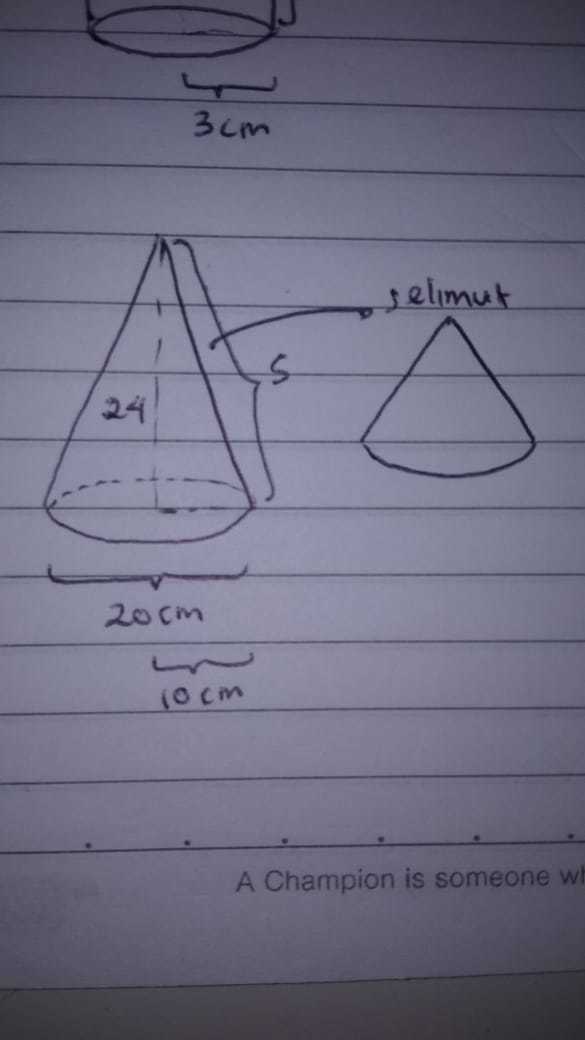 3 cm
selimut
S
24
20 cm
10 cm
A Champion is someone